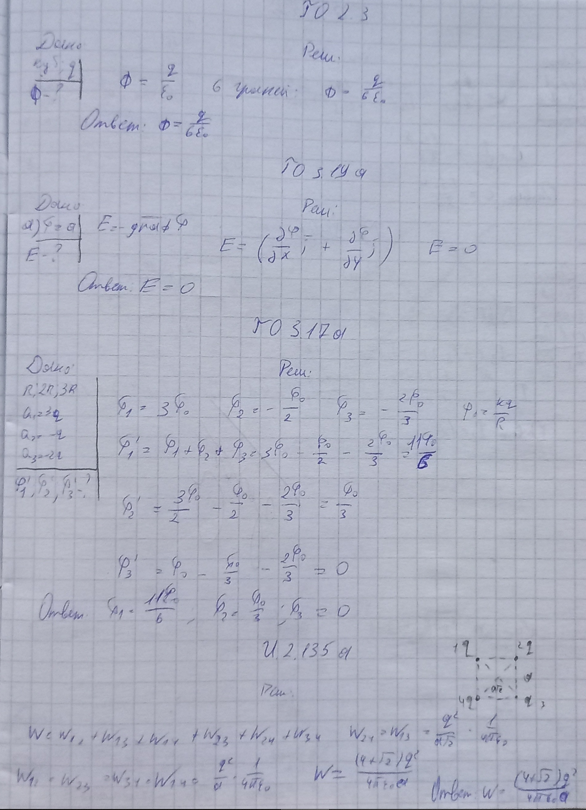 ГО 2.3
Дано Реш:
куб, q
Ф-? Ф = q/ε₀ 6 граней: Ф = q/6ε₀
Ответ: Ф = q/6ε₀
ГО 3.19а
Дано Реш:
а) φ = a E = -gradφ E = (∂φ/∂x i + ∂φ/∂y j) E = 0
E-?
Ответ: E = 0
ГО 3.17а
Дано: Реш:
R; 2R; 3R φ₁ = 3φ₀ φ₂ = -φ₀/2 φ₃ = -2φ₀/3 φ₀ = kq/R
φ₁' = φ₁ + φ₂ + φ₃ = 3φ₀ - φ₀/2 - 2φ₀/3 = 11φ₀/6
φ₁', φ₂', φ₃'-?
φ₂' = 3φ₀/2 - φ₀/2 - 2φ₀/3 = φ₀/3
φ₃' = φ₀ - φ₀/3 - 2φ₀/3 = 0
Ответ φ₁ = 11φ₀/6, φ₂ = φ₀/3; φ₃ = 0
И 2.135а
1q 2q
4q q 3
Реш:
W = W₁₂ + W₁₃ + W₁₄ + W₂₃ + W₂₄ + W₃₄ W₂₄ = W₁₃ = q²/a√2 · 1/4πε₀
W₁₂ = W₂₃ = W₃₄ = W₁₄ = q²/a · 1/4πε₀ W = (4+√2)q²/4πε₀a Ответ W = (4+√2)q²/4πε₀a